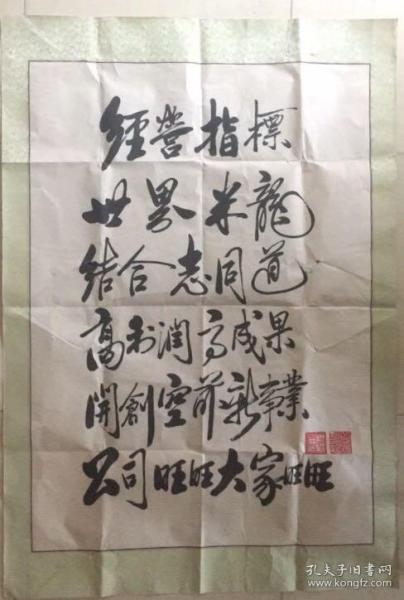 經營指標
世界米龍
結合志同道
高利潤高成果
開創空前新事業
公司旺旺大家旺旺
孔夫子旧书网
www.kongfz.com